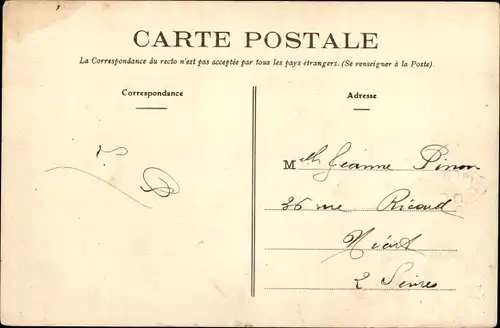 CARTE POSTALE
La Correspondance du recto n'est pas acceptée par tous les pays étrangers. (Se renseigner à la Poste).
Correspondance
Adresse
Mlle Jeanne Pinon
36 rue Ricard
Niort
2 Sèvres